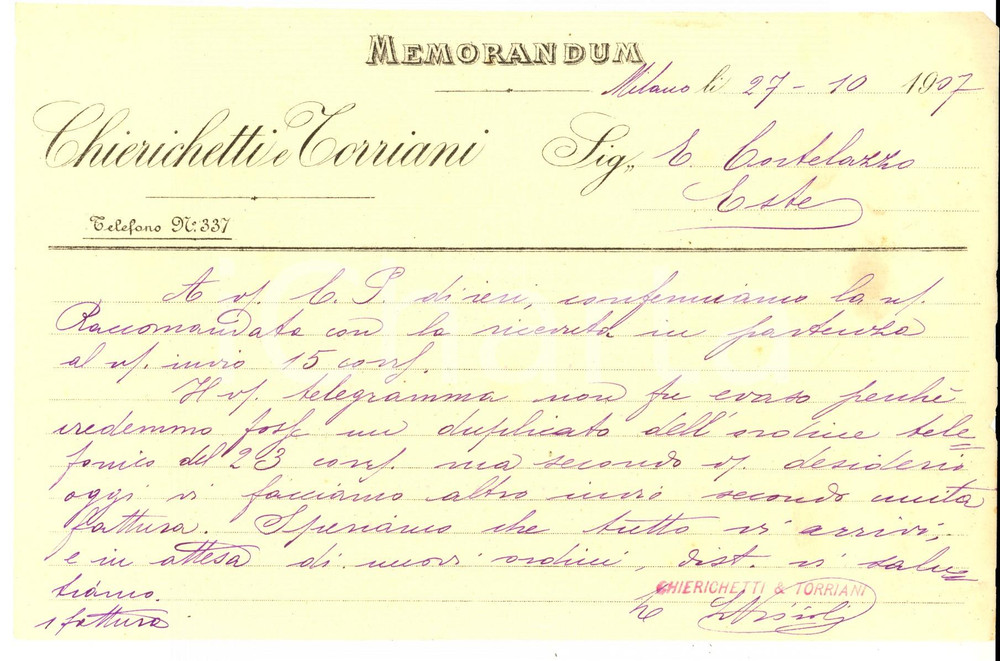 MEMORANDUM
Milano li 27 - 10 1907
Chierichetti e Torriani
Sig,, E Cortelazzo
Este
Telefono No. 337
A vs. C. P. di ieri, confermiamo la ns.
Raccomandata con la ricevuta in partenza
al vs. invio 15 corrs.
Il vs. telegramma non fu evaso perchè
credemmo foss un duplicato dell'ordine tele=
fonico del 23 corrs. ma secondo vs. desiderio
oggi vi facciamo altro invio secondo unita
fattura. Speriamo che tutto vi arrivi,
e in attesa di nuovi ordini, dist. vi salu=
tiamo.
CHIERICHETTI & TORRIANI
1 fattura